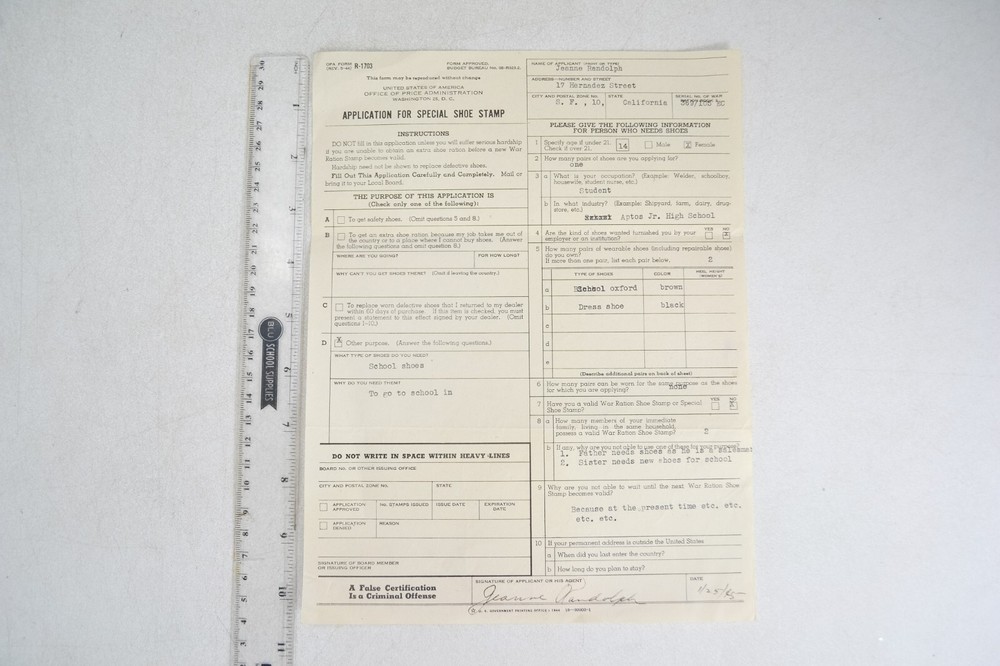 OPA FORM R-1703
(REV. 9-44)
FORM APPROVED.
BUDGET BUREAU No.
This form may be reproduced without change
UNITED STATES OF AMERICA
OFFICE OF PRICE ADMINISTRATION
WASHINGTON 25, D. C.
APPLICATION FOR SPECIAL SHOE STAMP
INSTRUCTIONS
DO NOT fill in this application unless you will suffer serious hardship
if you are unable to obtain an extra shoe ration before a new War
Ration Stamp becomes valid.
Hardship need not be shown to replace defective shoes.
Fill Out This Application Carefully and Completely. Mail or
bring it to your Local Board.
THE PURPOSE OF THIS APPLICATION IS
(Check only one of the following):
A To get safety shoes. (Omit questions 5 and 8.)
B To get an extra shoe ration because my job takes me out of
the country or to a place where I cannot buy shoes. (Answer
the following questions and omit question 8.)
WHERE ARE YOU GOING?
FOR HOW LONG?
WHY CAN'T YOU GET SHOES THERE? (Omit if leaving the country.)
C To replace worn defective shoes that I returned to my dealer
within 60 days of purchase. If this item is checked, you must
present a statement to this effect signed by your dealer. (Omit
questions 1-10.)
D X Other purpose. (Answer the following questions.)
WHAT TYPE OF SHOES DO YOU NEED?
School shoes
WHY DO YOU NEED THEM?
To go to school in
DO NOT WRITE IN SPACE WITHIN HEAVY LINES
BOARD NO. OR OTHER ISSUING OFFICE
CITY AND POSTAL ZONE No.
STATE
APPLICATION APPROVED
No. STAMPS ISSUED
ISSUE DATE
EXPIRATION DATE
APPLICATION DENIED
REASON
SIGNATURE OF BOARD MEMBER
OR ISSUING OFFICER
A False Certification
Is a Criminal Offense
NAME OF APPLICANT (PRINT OR TYPE)
Jeanne Randolph
ADDRESS—NUMBER AND STREET
17 Hernadez Street
CITY AND POSTAL ZONE NO.
STATE
SERIAL NO. OF WAR
S. F. , 10, California
PLEASE GIVE THE FOLLOWING INFORMATION
FOR PERSON WHO NEEDS SHOES
1 Specify age if under 21.
Check if over 21. 14 Male X Female
2 How many pairs of shoes are you applying for?
one
3 a What is your occupation? (Example: Welder, schoolboy,
housewife, student nurse, etc.)
Student
b In what industry? (Example: Shipyard, farm, dairy, drug-
store, etc.)
Aptos Jr. High School
4 Are the kind of shoes wanted furnished you by your
employer or an institution?
YES NO
X
5 How many pairs of wearable shoes (including repairable shoes)
do you own?
If more than one pair, list each pair below. 2
TYPE OF SHOES
COLOR
HEEL HEIGHT
a School oxford brown
b Dress shoe black
c
d
e
(Describe additional pairs on back of sheet)
6 How many pairs can be worn for the same purpose as the shoes
for which you are applying? none
7 Have you a valid War Ration Shoe Stamp or Special
Shoe Stamp?
YES NO
X
8 a How many members of your immediate
family, living in the same household,
possess a valid War Ration Shoe Stamp? 2
b If any, why are you not able to use one of them for your purpose?
1. Father needs shoes as he is a salesman
2. Sister needs new shoes for school
9 Why are you not able to wait until the next War Ration Shoe
Stamp becomes valid?
Because at the present time etc. etc.
etc. etc.
10 If your permanent address is outside the United States
a When did you last enter the country?
b How long do you plan to stay?
SIGNATURE OF APPLICANT OR HIS AGENT
Jeanne Randolph
DATE
U. S. GOVERNMENT PRINTING OFFICE: 1944
BLU SCHOOL SUPPLIES